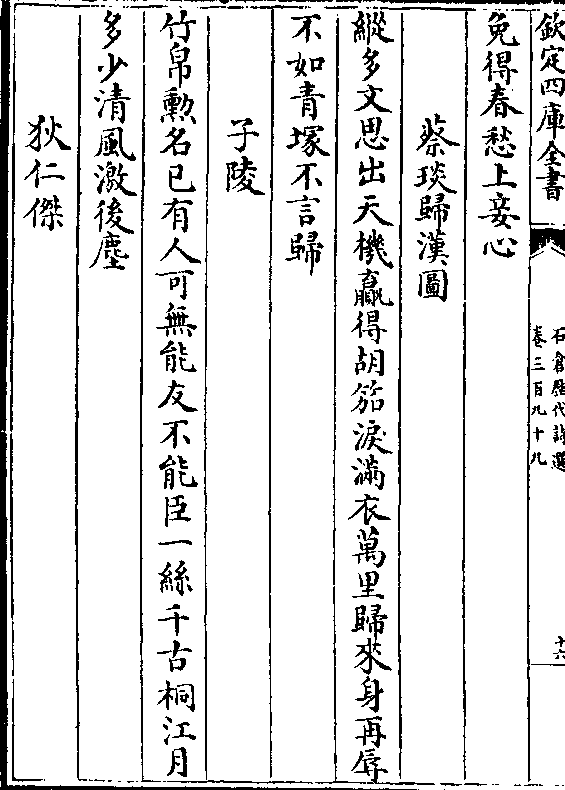 欽定四庫全書
石倉歷代詩選
卷三百九十九
十六
免得春愁上妾心
蔡琰歸漢圖
縱多文思出天機贏得胡笳淚滿衣萬里歸來身再辱
不如青塚不言歸
子陵
竹帛勲名已有人可無能友不能臣一絲千古桐江月
多少清風激後塵
狄仁傑